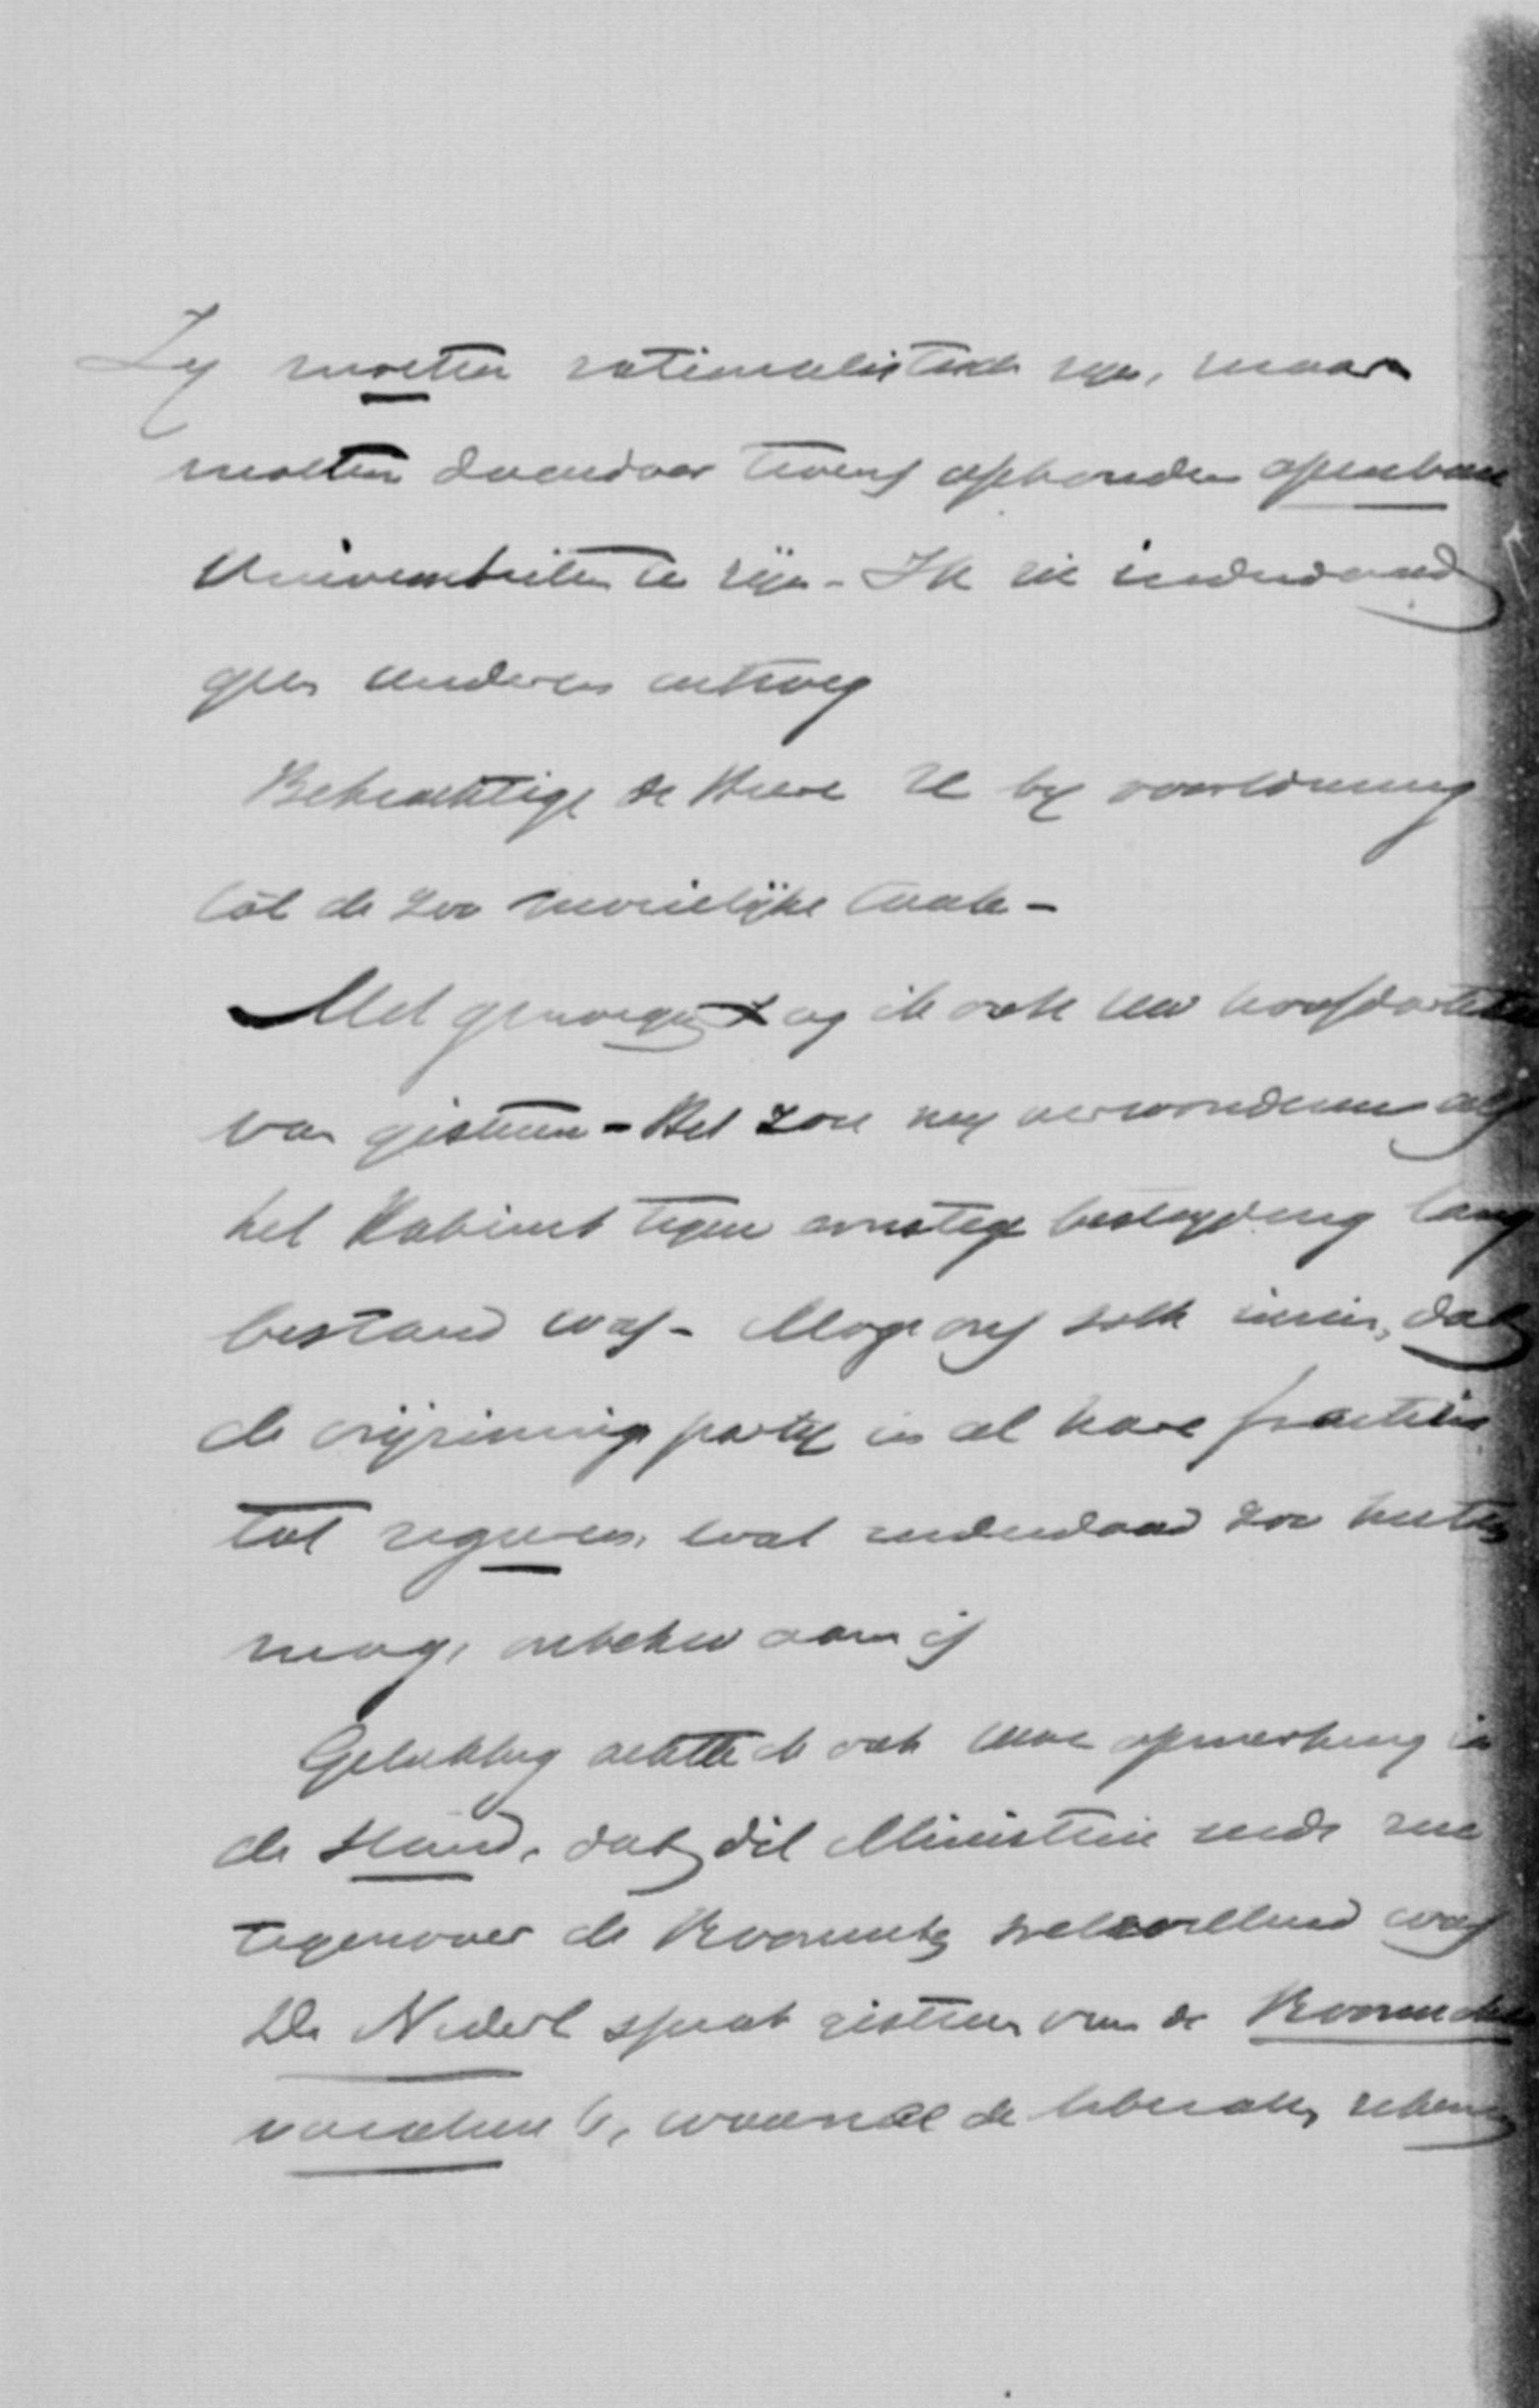 Zy moeten rationalistisch zyn, maar
moeten daardoor tevens ophouden openbare
Universiteiten te zijn - Ik zie inderdaad
geen anderen uitweg
Bekrachtige de Heere U by voortduring
tot de zoo moeielijke taak -
Met genoegen zag ik ook Uw hoofdartikel
van gisteren - Het zou my verwonderen als
het Kabinet tegen ernstige bestryding lang
bestand was - Moge ons volk inzien, dat
de vrijzinnige party in al hare fractiën
tot regeeren, wat inderdaad zoo heeten
mag, onbekwaam is
Gelukkig achtte ik ook uwe opmerking in
de Stand, dat dit Ministerie mede zoo
tegenover de Roomsch welwillend was
De Nederl sprak gisteren van de Roomsche
, waarnaar de liberalen